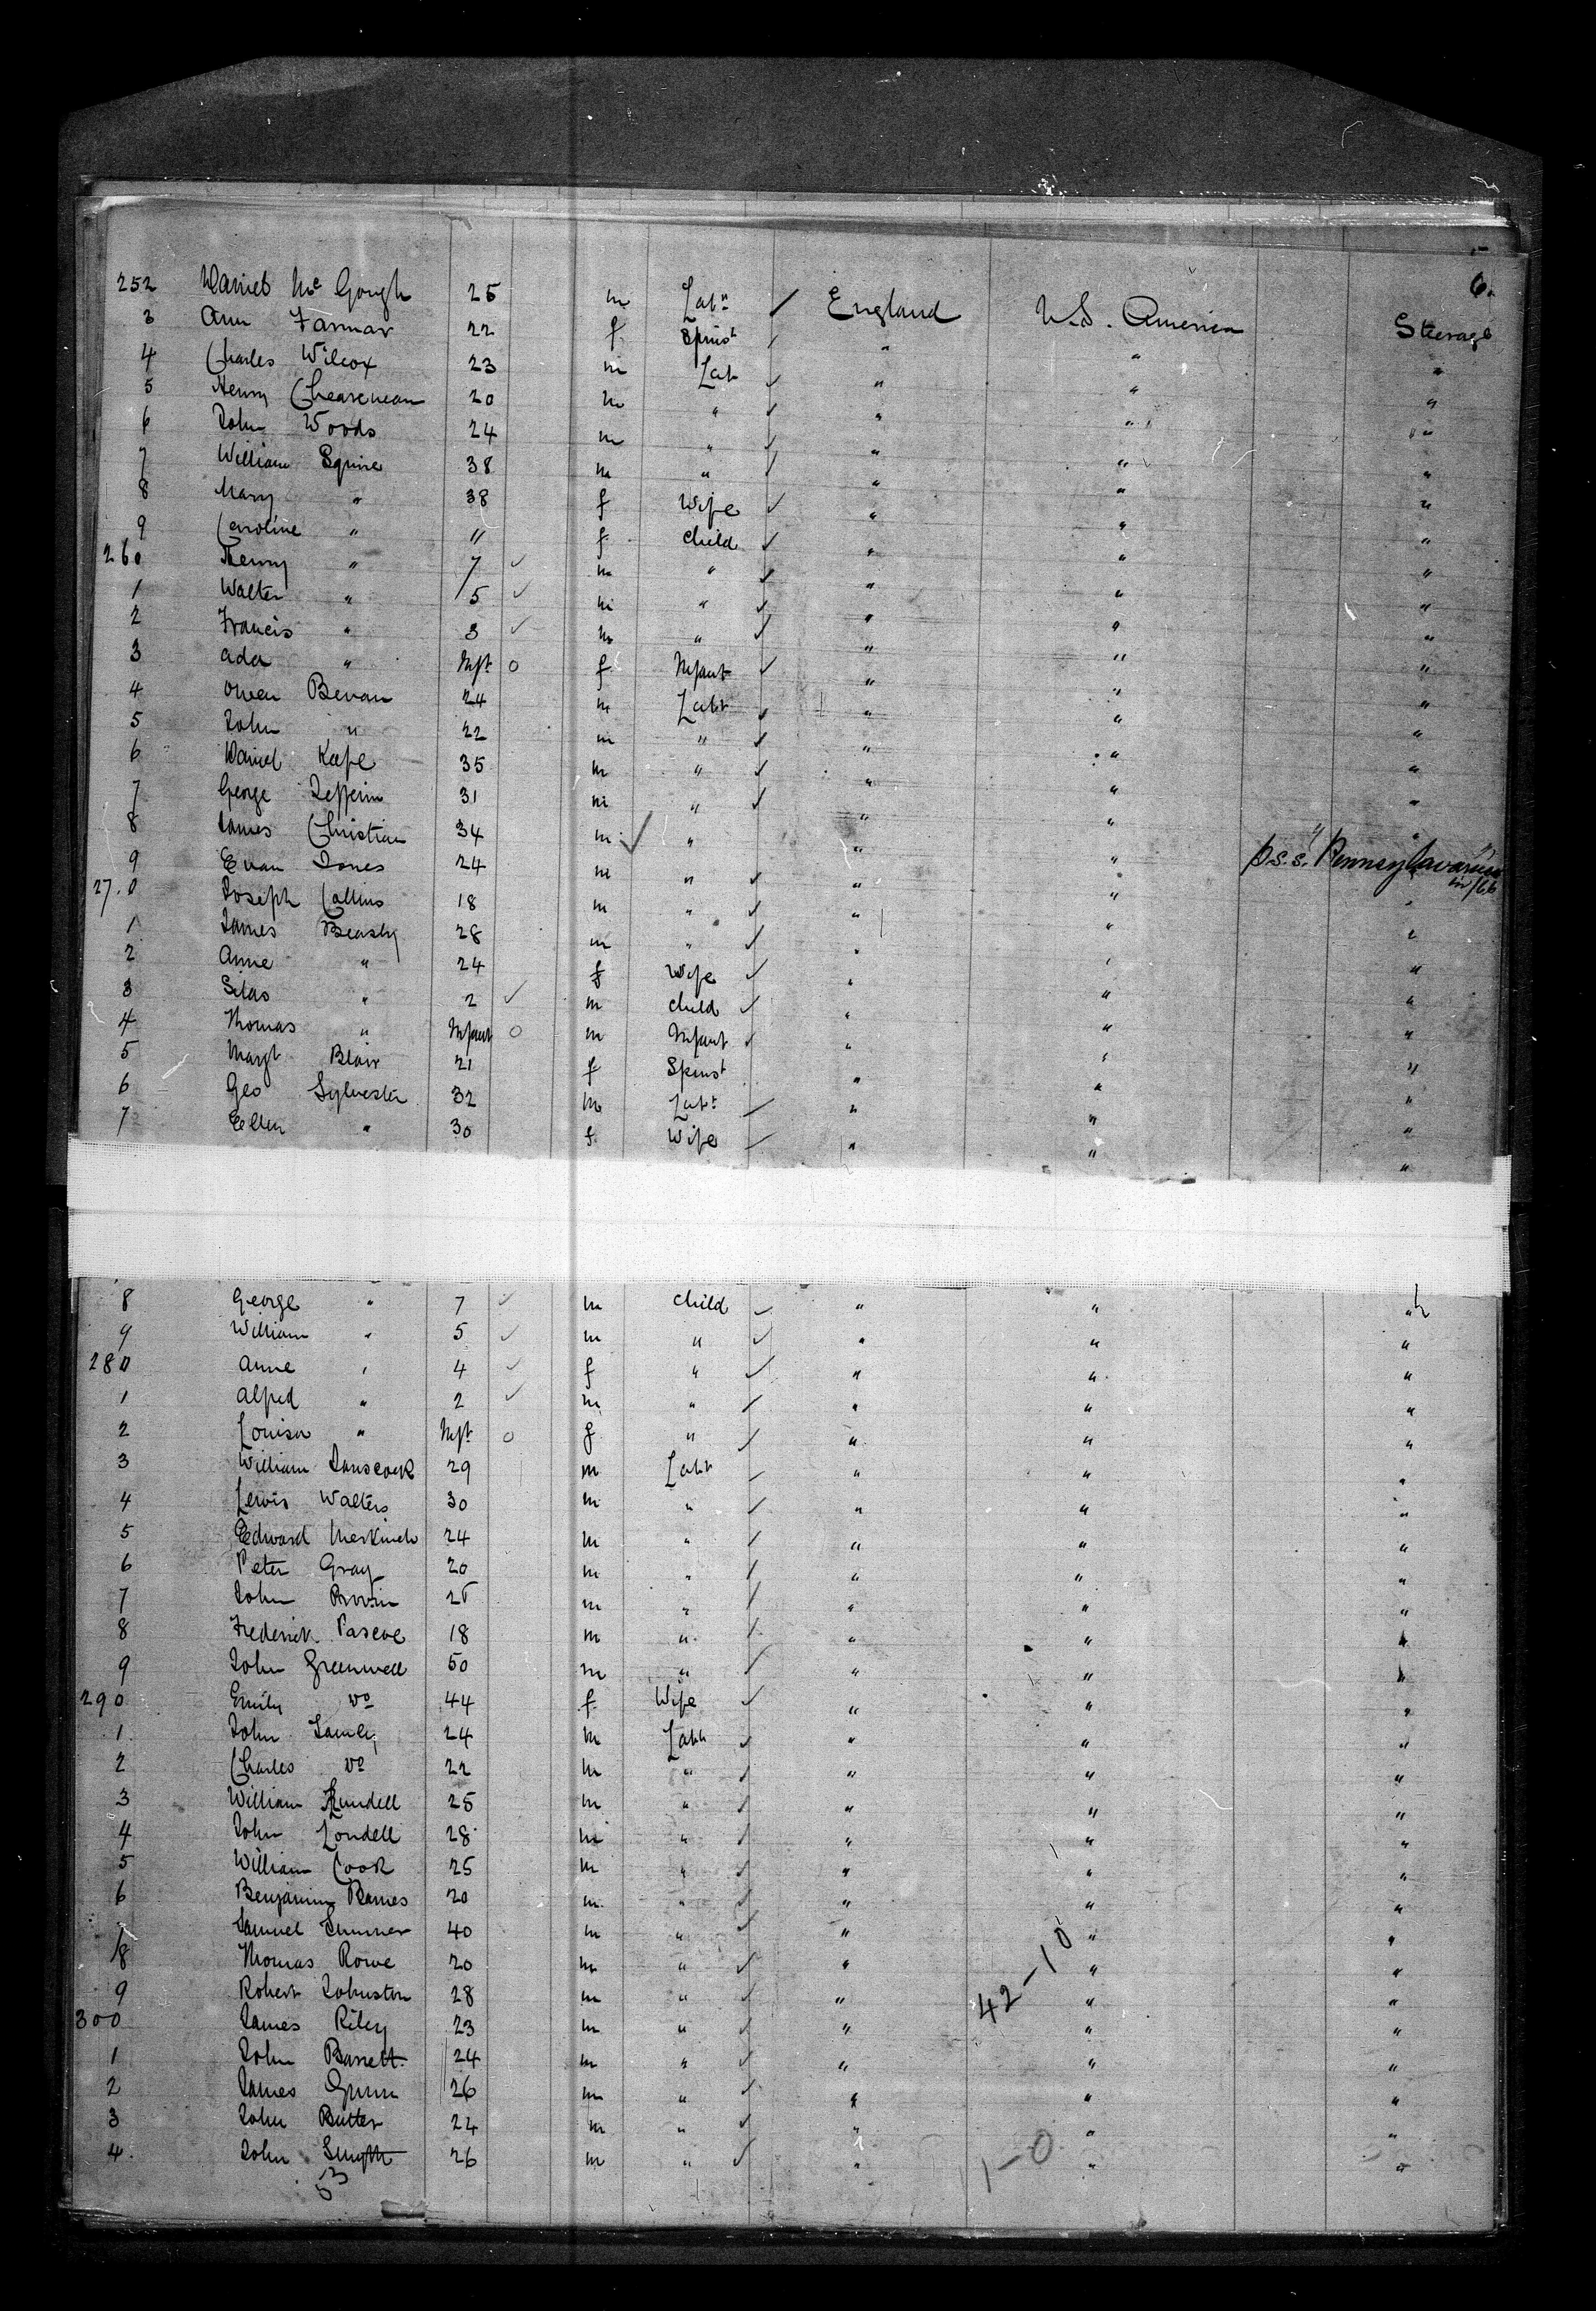 6.
252 Daniel McGough 25 m Labr England U.S. America Steerage
3 Ann Farmar 22 f Spinst " " "
4 Charles Wilcox 23 m Lab " " "
5 Henry 20 m " " " "
6 John Woods 24 m " " " "
7 William Squire 38 m " " " "
8 Mary " 38 f Wife " " "
9 Caroline " 11 f child " " "
260 Henry " 7 m " " " "
1 Walter " 5 m " " " "
2 Francis " 3 m " " " "
3 Ada " Inft O f Infant " " "
4 Owen Bevan 24 m Labr " " "
5 John " 22 m " " " "
6 Daniel Keefe 35 m " " " "
7 George 31 m " " " "
8 James Christian 34 m " " " "
9 Evan Jones 24 m " " " p s.s. "Pennsylavania" in /66
270 Joseph Collins 18 m " " " "
1 James Beasly 28 m " " " "
2 Anne " 24 f Wife " " "
3 Silas " 2 m child " " "
4 Thomas " Infant O m Infant " " "
5 Margt Blair 21 f Spinst " " "
6 Geo Sylvester 32 m Labr " " "
7 Ellen " 30 f Wife " " "
8 George " 7 m child " " "
9 William " 5 m " " " "
280 Anne " 4 f " " " "
1 Alfred " 2 m " " " "
2 Louisa " Inft O f " " " "
3 William 29 m Labr " " "
4 Lewis Walters 30 m " " " "
5 Edward 24 m " " " "
6 Peter Gray 20 m " " " "
7 John 25 m " " " "
8 Frederick Pascoe 18 m " " " "
9 John Greenwell 50 m " " " "
290 Emily Do 44 f Wife " " "
1 John 24 m Labr " " "
2 Charles Do 22 m " " " "
3 William 25 m " " " "
4 John Londell 28 m " " " "
5 William Cook 25 m " " " "
6 Benjamin Barnes 20 m " " " "
7 Samuel Sumner 40 m " " " "
8 Thomas Rowe 20 m " " " "
9 Robert Johnston 28 m " " 42-10 " "
300 James Riley 23 m " " " "
1 John Barrett 24 m " " " "
2 James Gunn 26 m " " " "
3 John Butter 22 m " " " "
4 John Smyth 26 m " " 1-0 " "
53